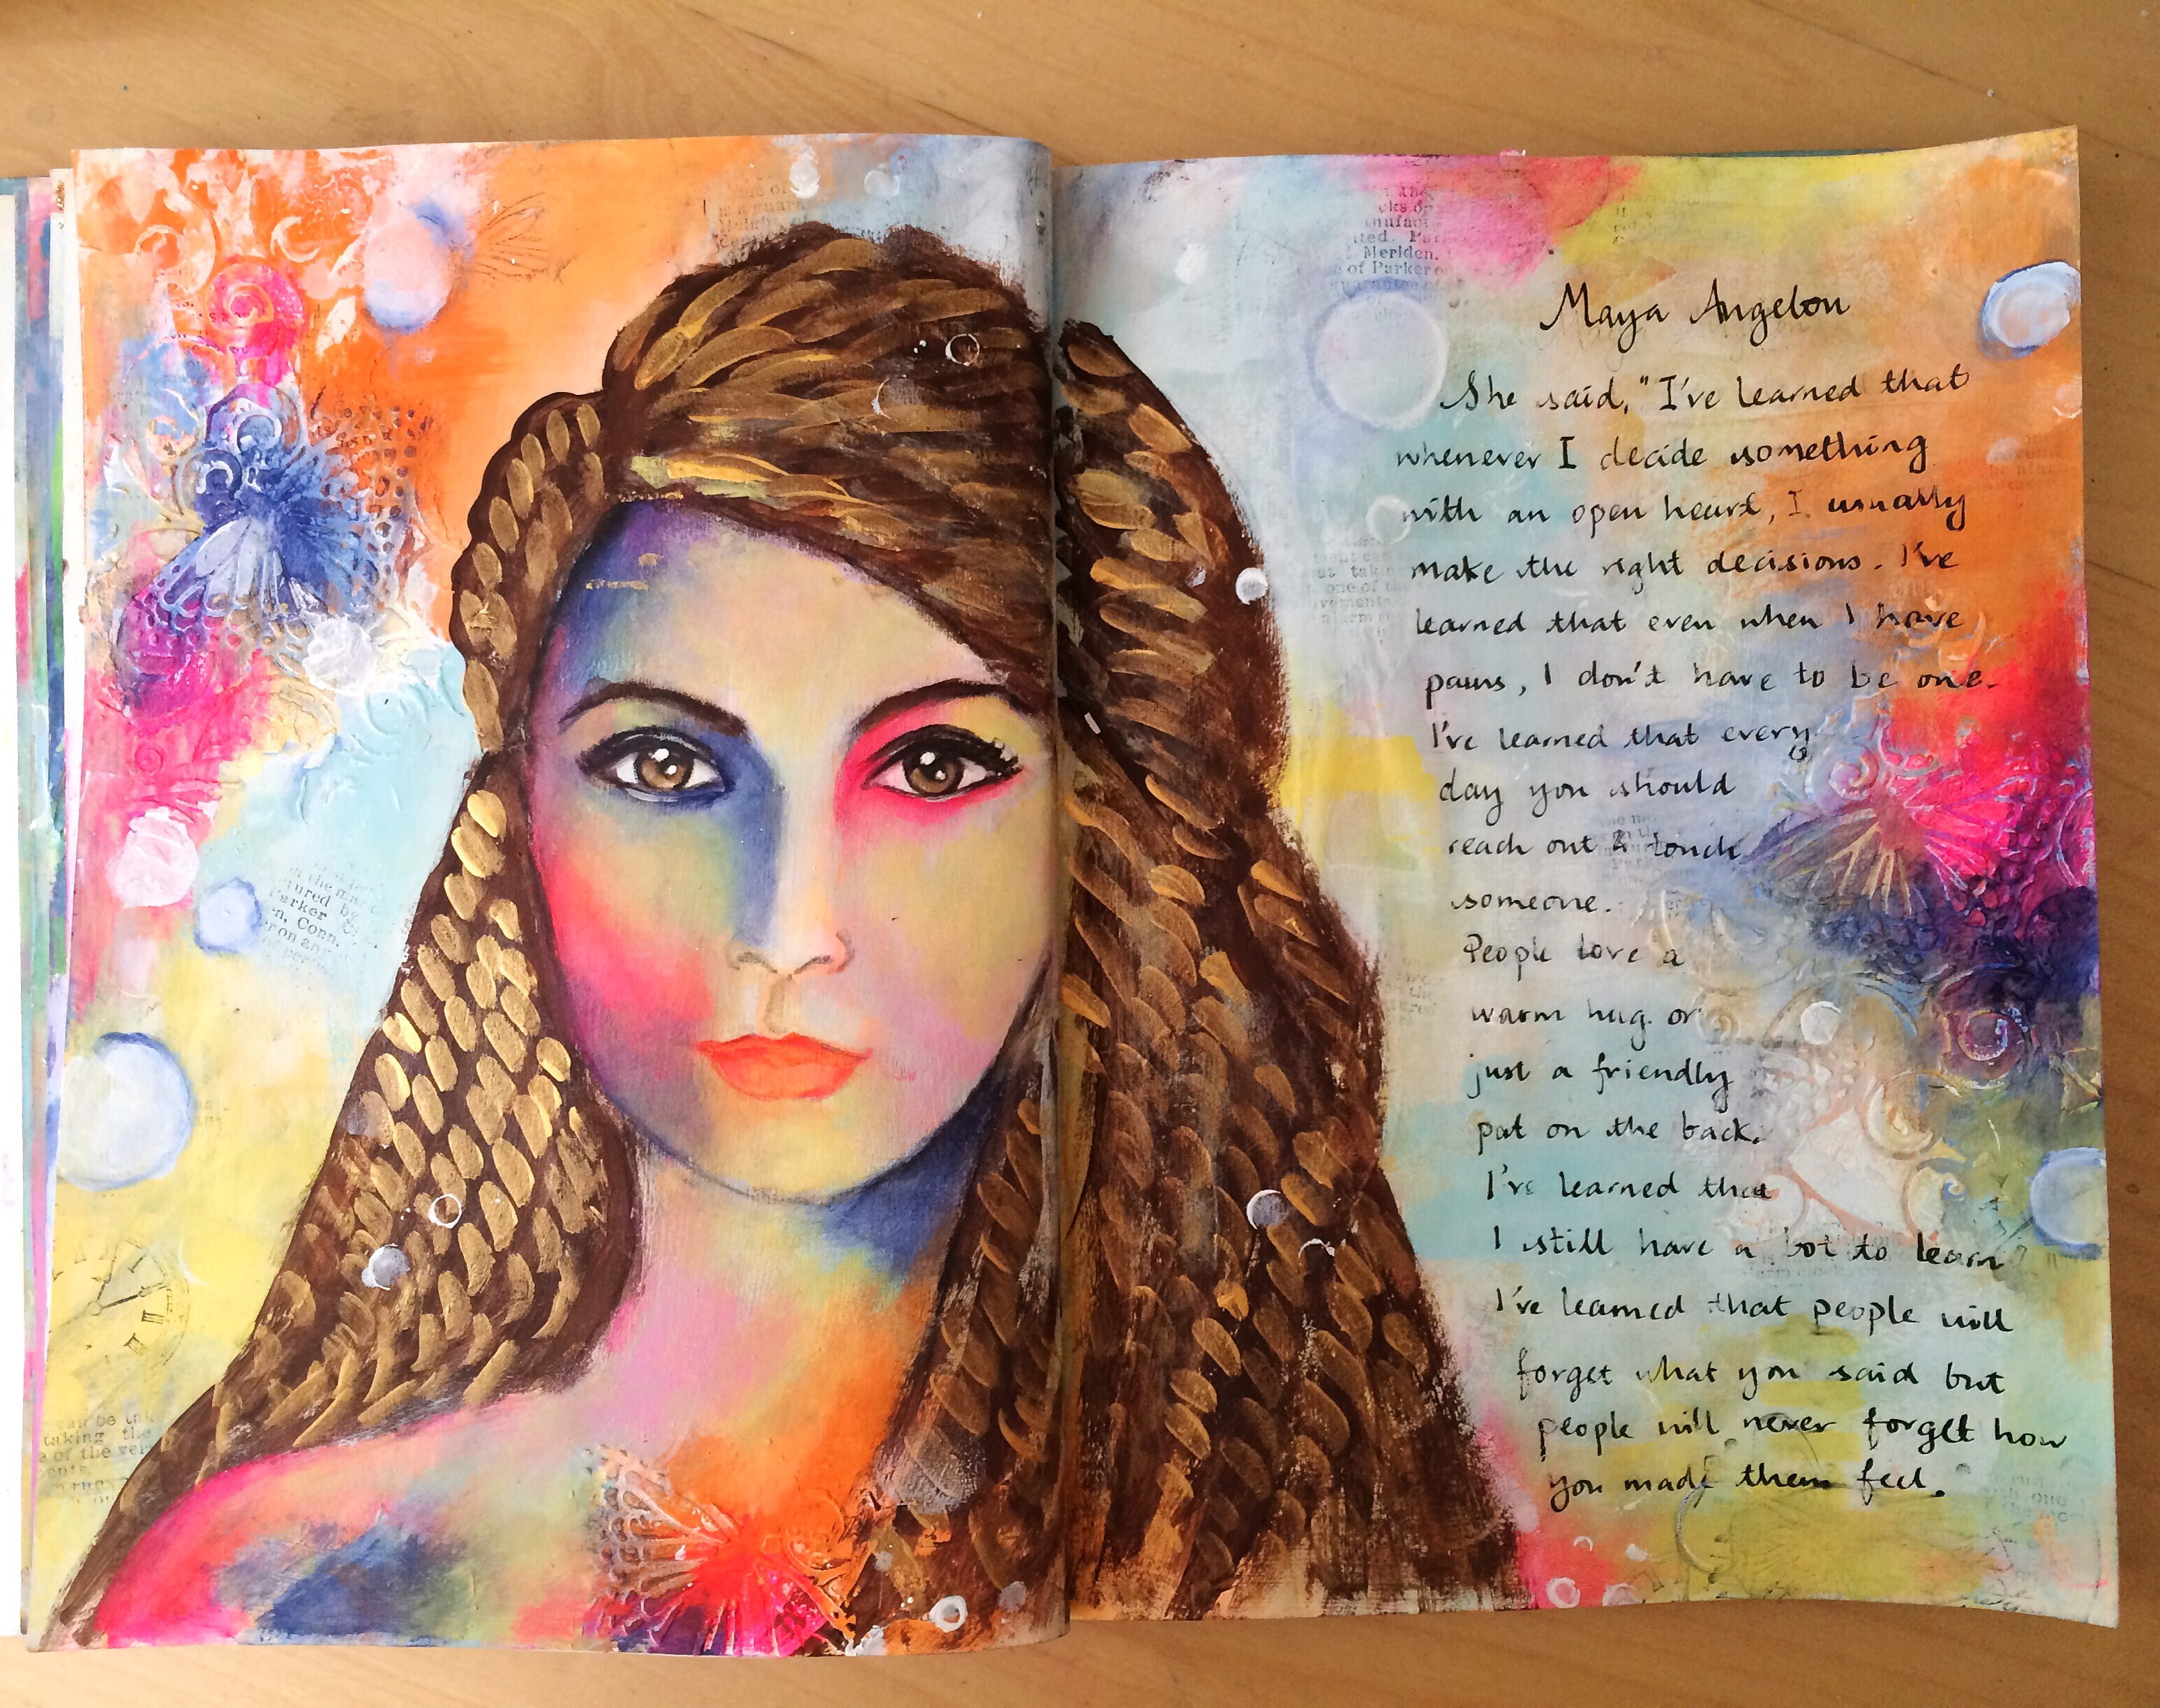 Maya Angelou
She said, "I've learned that
whenever I decide something
with an open heart, I usually
make the right decisions. I've
learned that even when I have
pains, I don't have to be one.
I've learned that every
day you should
reach out & touch
someone.
People love a
warm hug or
just a friendly
pat on the back.
I've learned that
I still have a lot to learn
I've learned that people will
forget what you said but
people will never forget how
you made them feel.
cks of
Meriden,
of Parker
one of
in the
tured by
Parker
n, Conn.
can be
taking the
of the